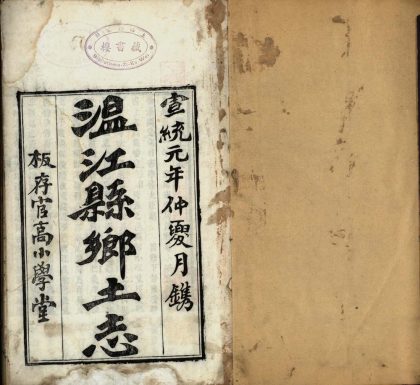 宣統元年仲夏月鐫
溫江縣鄉土志
板存官高小學堂
藏書樓